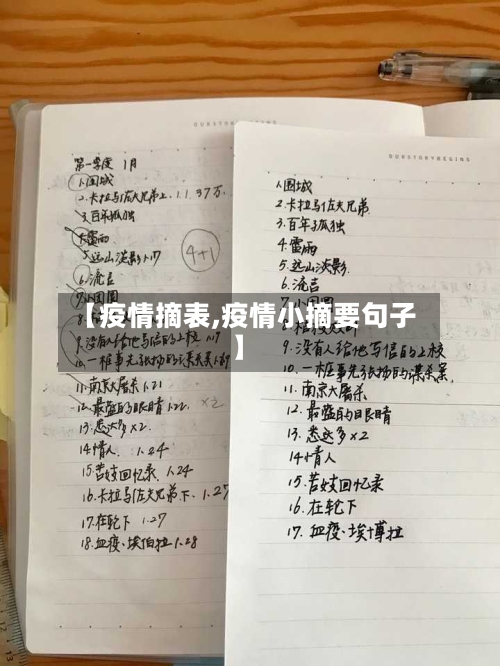 OURSTORYBEGINS
第一季度 1月
1.围城
2.卡拉马佐夫兄弟上. 1.1 37万.
3.百年孤独
4.雷雨
5.远山淡影 1.17
6.流言
7.小团圆
8.
9.没有人给他写信的上校 1.19
10.一桩事先张扬的谋杀案
11.南京大屠杀 1.21
12.最蓝的眼睛 1.22. ×2
13.悉达多×2.
14.情人. 1.24
15.苦妓回忆录. 1.24
16.卡拉马佐夫兄弟下. 1.27
17.在轮下 1.27
18.血疫·埃伯拉 1.28
4+1
OURSTORYBEGINS
1.围城
2.卡拉马佐夫兄弟
3.百年孤独
4.雷雨
5.远山淡影.
6.流言
7.小团圆
9.没有人给他写信的上校
10.一桩事先张扬的谋杀案.
11.南京大屠杀.
12.最蓝的眼睛
13.悉达多×2
14.情人
15.苦妓回忆录
16.在轮下
17.血疫·埃博拉
【疫情摘表,疫情小摘要句子
】